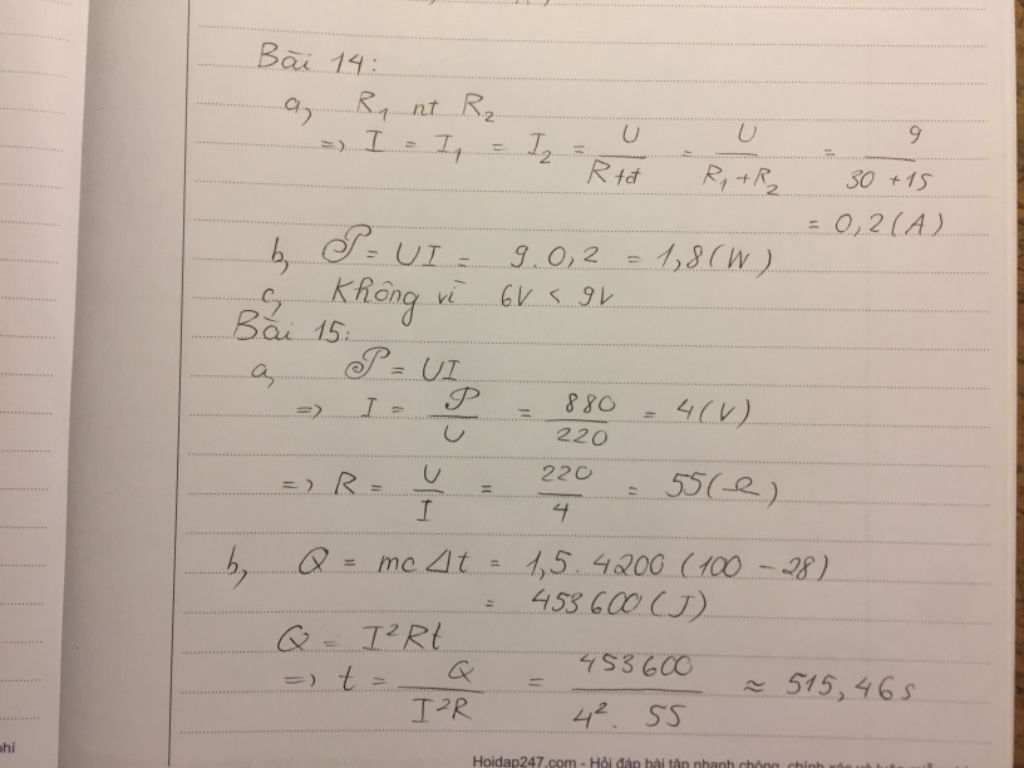 Bài 14:
a, R₁ nt R₂
=> I = I₁ = I₂ = U/Rtđ = U/(R₁+R₂) = 9/(30+15)
= 0,2(A)
b, 𝒫 = UI = 9.0,2 = 1,8(W)
c, Không vì 6V < 9V
Bài 15:
a, 𝒫 = UI
=> I = 𝒫/U = 880/220 = 4(V)
=> R = U/I = 220/4 = 55(Ω)
b, Q = mcΔt = 1,5.4200(100-28)
= 453600(J)
Q = I²Rt
=> t = Q/I²R = 453600/4².55 ≈ 515,46s
phí
Hoidap247.com - Hỏi đáp bài tập nhanh chóng, chính xác và